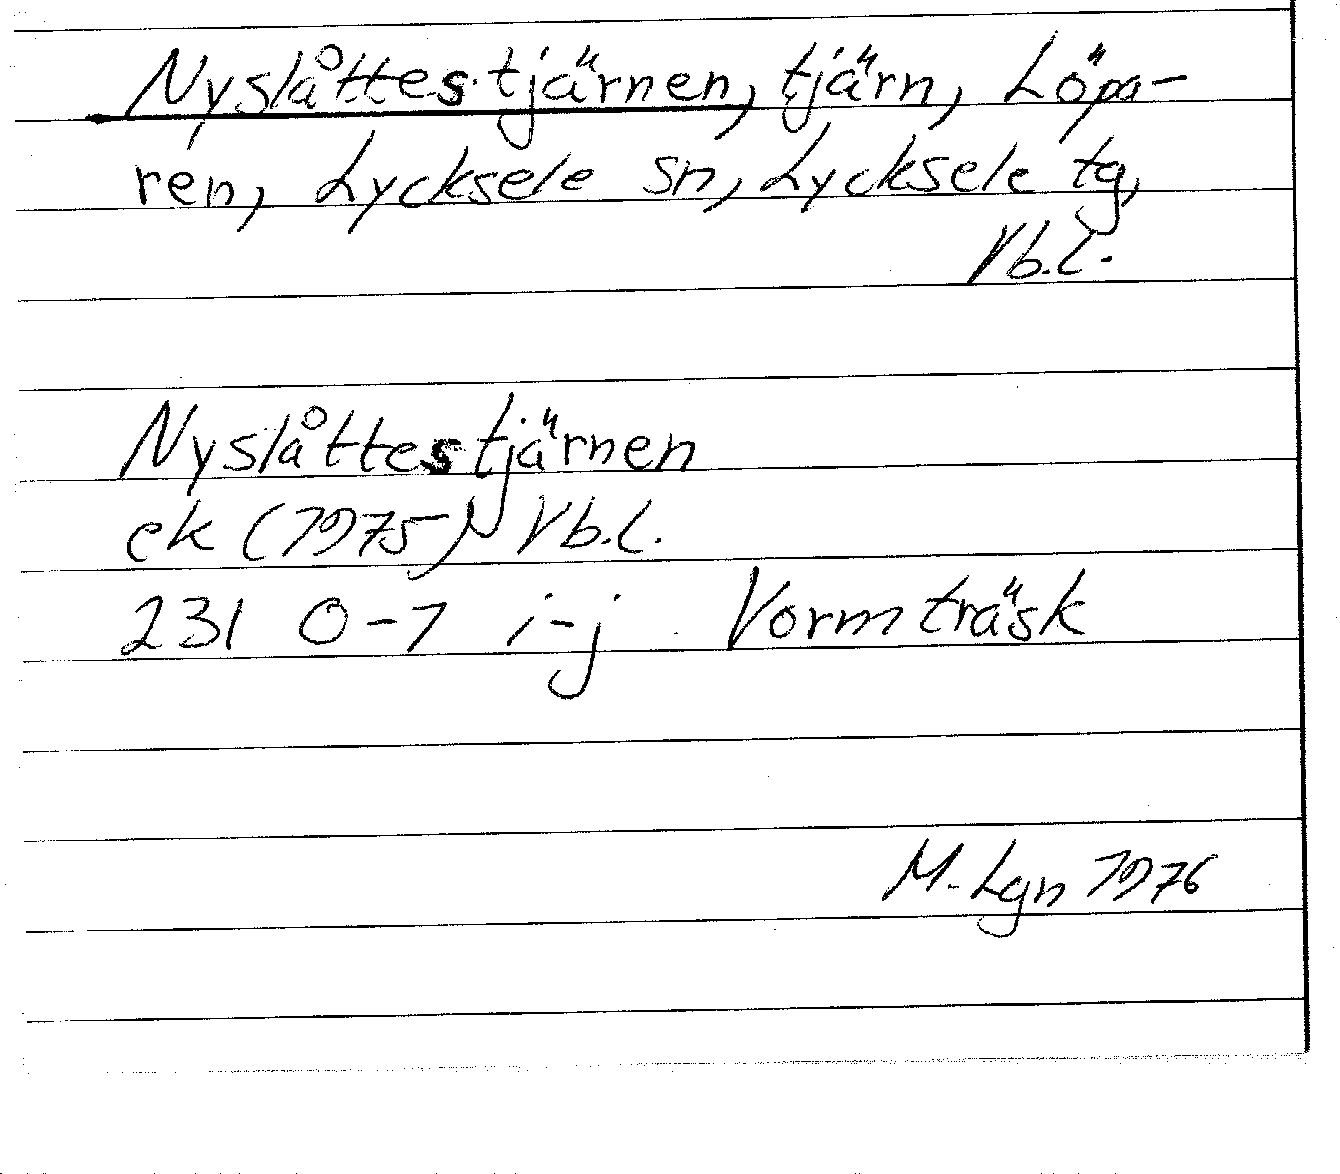 Nyslåttestjärnen, tjärn, Löpa-
ren, Lycksele sn, Lycksele tg,
Vb.l.
Nyslåttestjärnen
ek (1975) Vb.l.
231 0-1 i-j Vormträsk
M. Lgn 1976